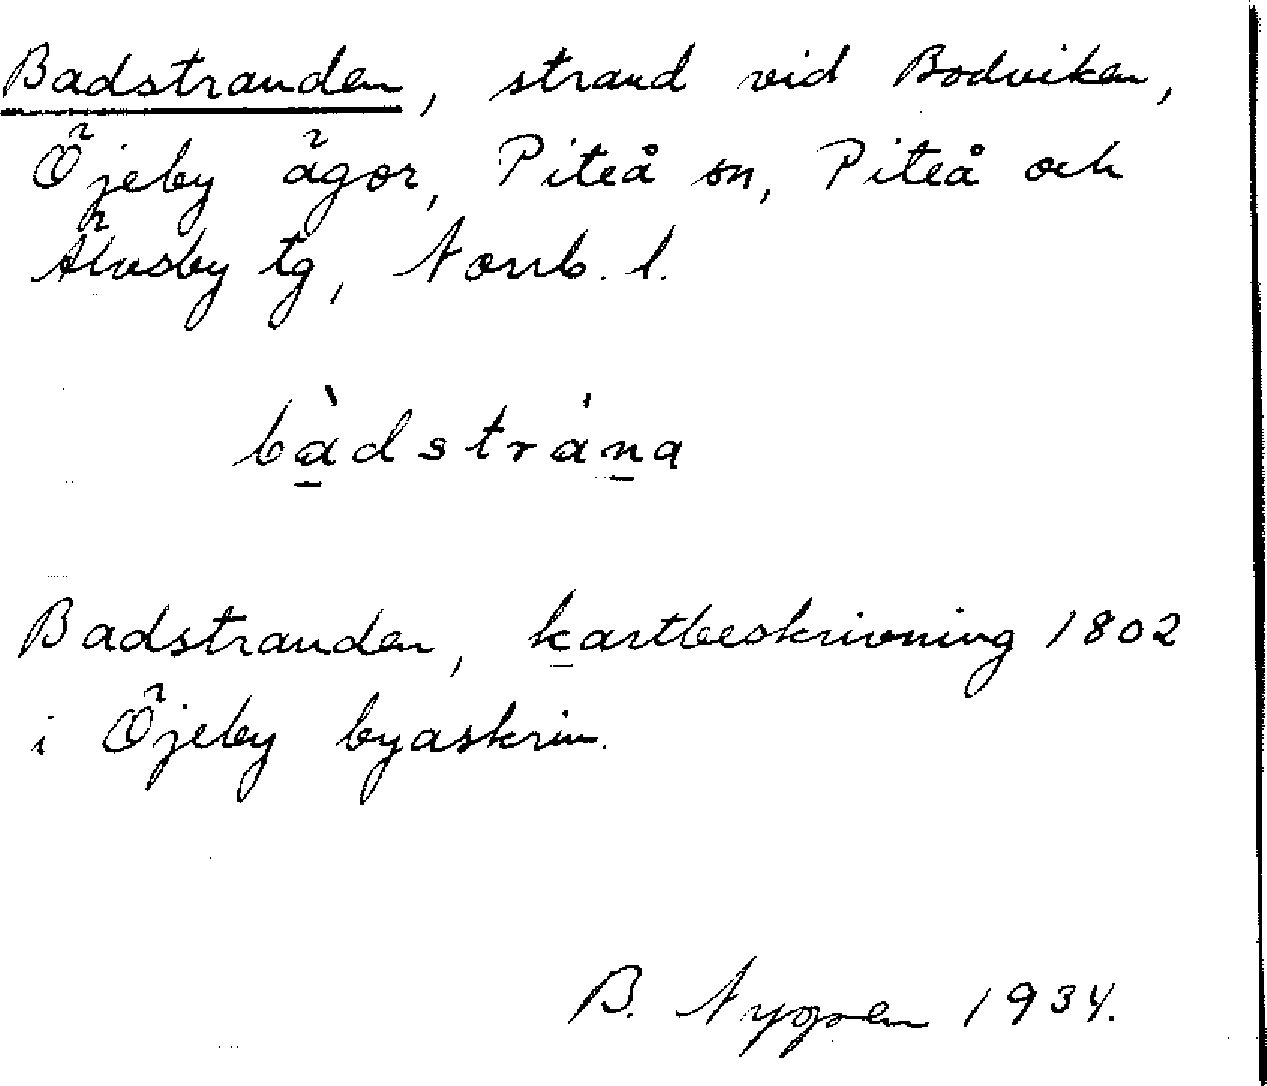 Badstranden, strand vid Bodviken,
Öjeby ägor, Piteå sn, Piteå och
Älvsby tg, Norrb. l.
bàdstrána
Badstranden, kartbeskrivning 1802
i Öjeby byaskrin.
B. Nygren 1934.